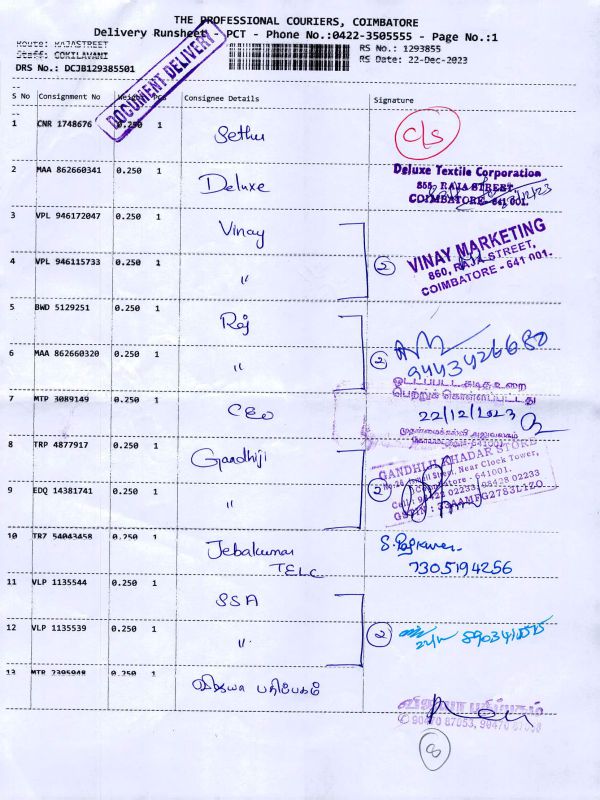 THE PROFESSIONAL COURIERS, COIMBATORE
Delivery Runsheet - PCT - Phone No.:0422-3505555 - Page No.:1
Route: RAJASTREET
Staff: GOKILAVANI
DRS No.: DCJB129385501
RS No.: 1293855
RS Date: 22-Dec-2023
DOCUMENT DELIVERY
S No Consignment No Weight Pcs Consignee Details Signature
1 CNR 1748676 0.250 1 Sethu C/S
2 MAA 862660341 0.250 1 Deluxe
Deluxe Textile Corporation
855, RAJA STREET,
COIMBATORE- 641 001.
3 VPL 946172047 0.250 1 Vinay
4 VPL 946115733 0.250 1 " 2
VINAY MARKETING
860, RAJA STREET,
COIMBATORE - 641 001.
5 BWD 5129251 0.250 1 Raj
6 MAA 862660320 0.250 1 " 2
9443426680
7 MTP 3089149 0.250 1 CEO
ஒட்டப்பட்ட கடித உறை
பெற்றுக் கொள்ளப்பட்டது
22/12/2023
முதன்மைக்கல்வி அலுவலகம்
8 TRP 4877917 0.250 1 Gandhiji
9 EDQ 14381741 0.250 1 " 2
GANDHIJI KHADAR STORE
Near Clock Tower,
Coimbatore - 641001.
GSTIN : 33AAMFG2783L1ZO
10 TR7 54043458 0.250 1 Jebakumar
TELC
S. Rajkumar
7305194256
11 VLP 1135544 0.250 1 SSA
12 VLP 1135539 0.250 1 " 2
22/12
13 MTR 2395948 0.250 1 விஜயா பதிப்பகம்
விஜயா பதிப்பகம்
90470 87053, 90470
8